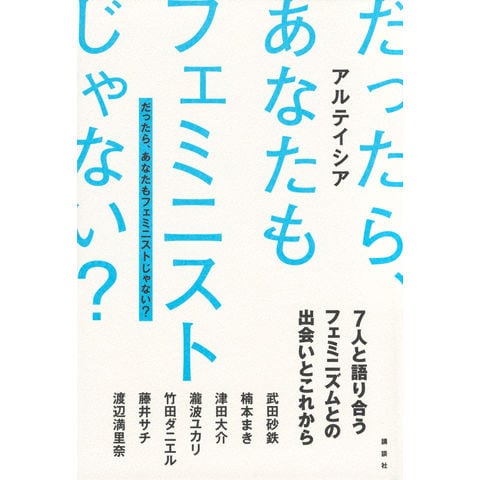 だったら、
あなたも
フェミニスト
じゃない?
アルテイシア
だったら、あなたもフェミニストじゃない?
7人と語り合う
フェミニズムとの
出会いとこれから
武田砂鉄
楠本まき
津田大介
瀧波ユカリ
竹田ダニエル
藤井サチ
渡辺満里奈
講談社